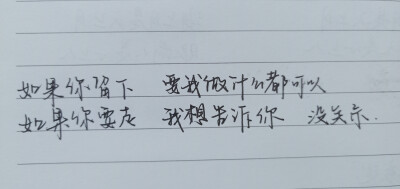 如果你留下 要我做什么都可以
如果你要走 我想告诉你 没关系.